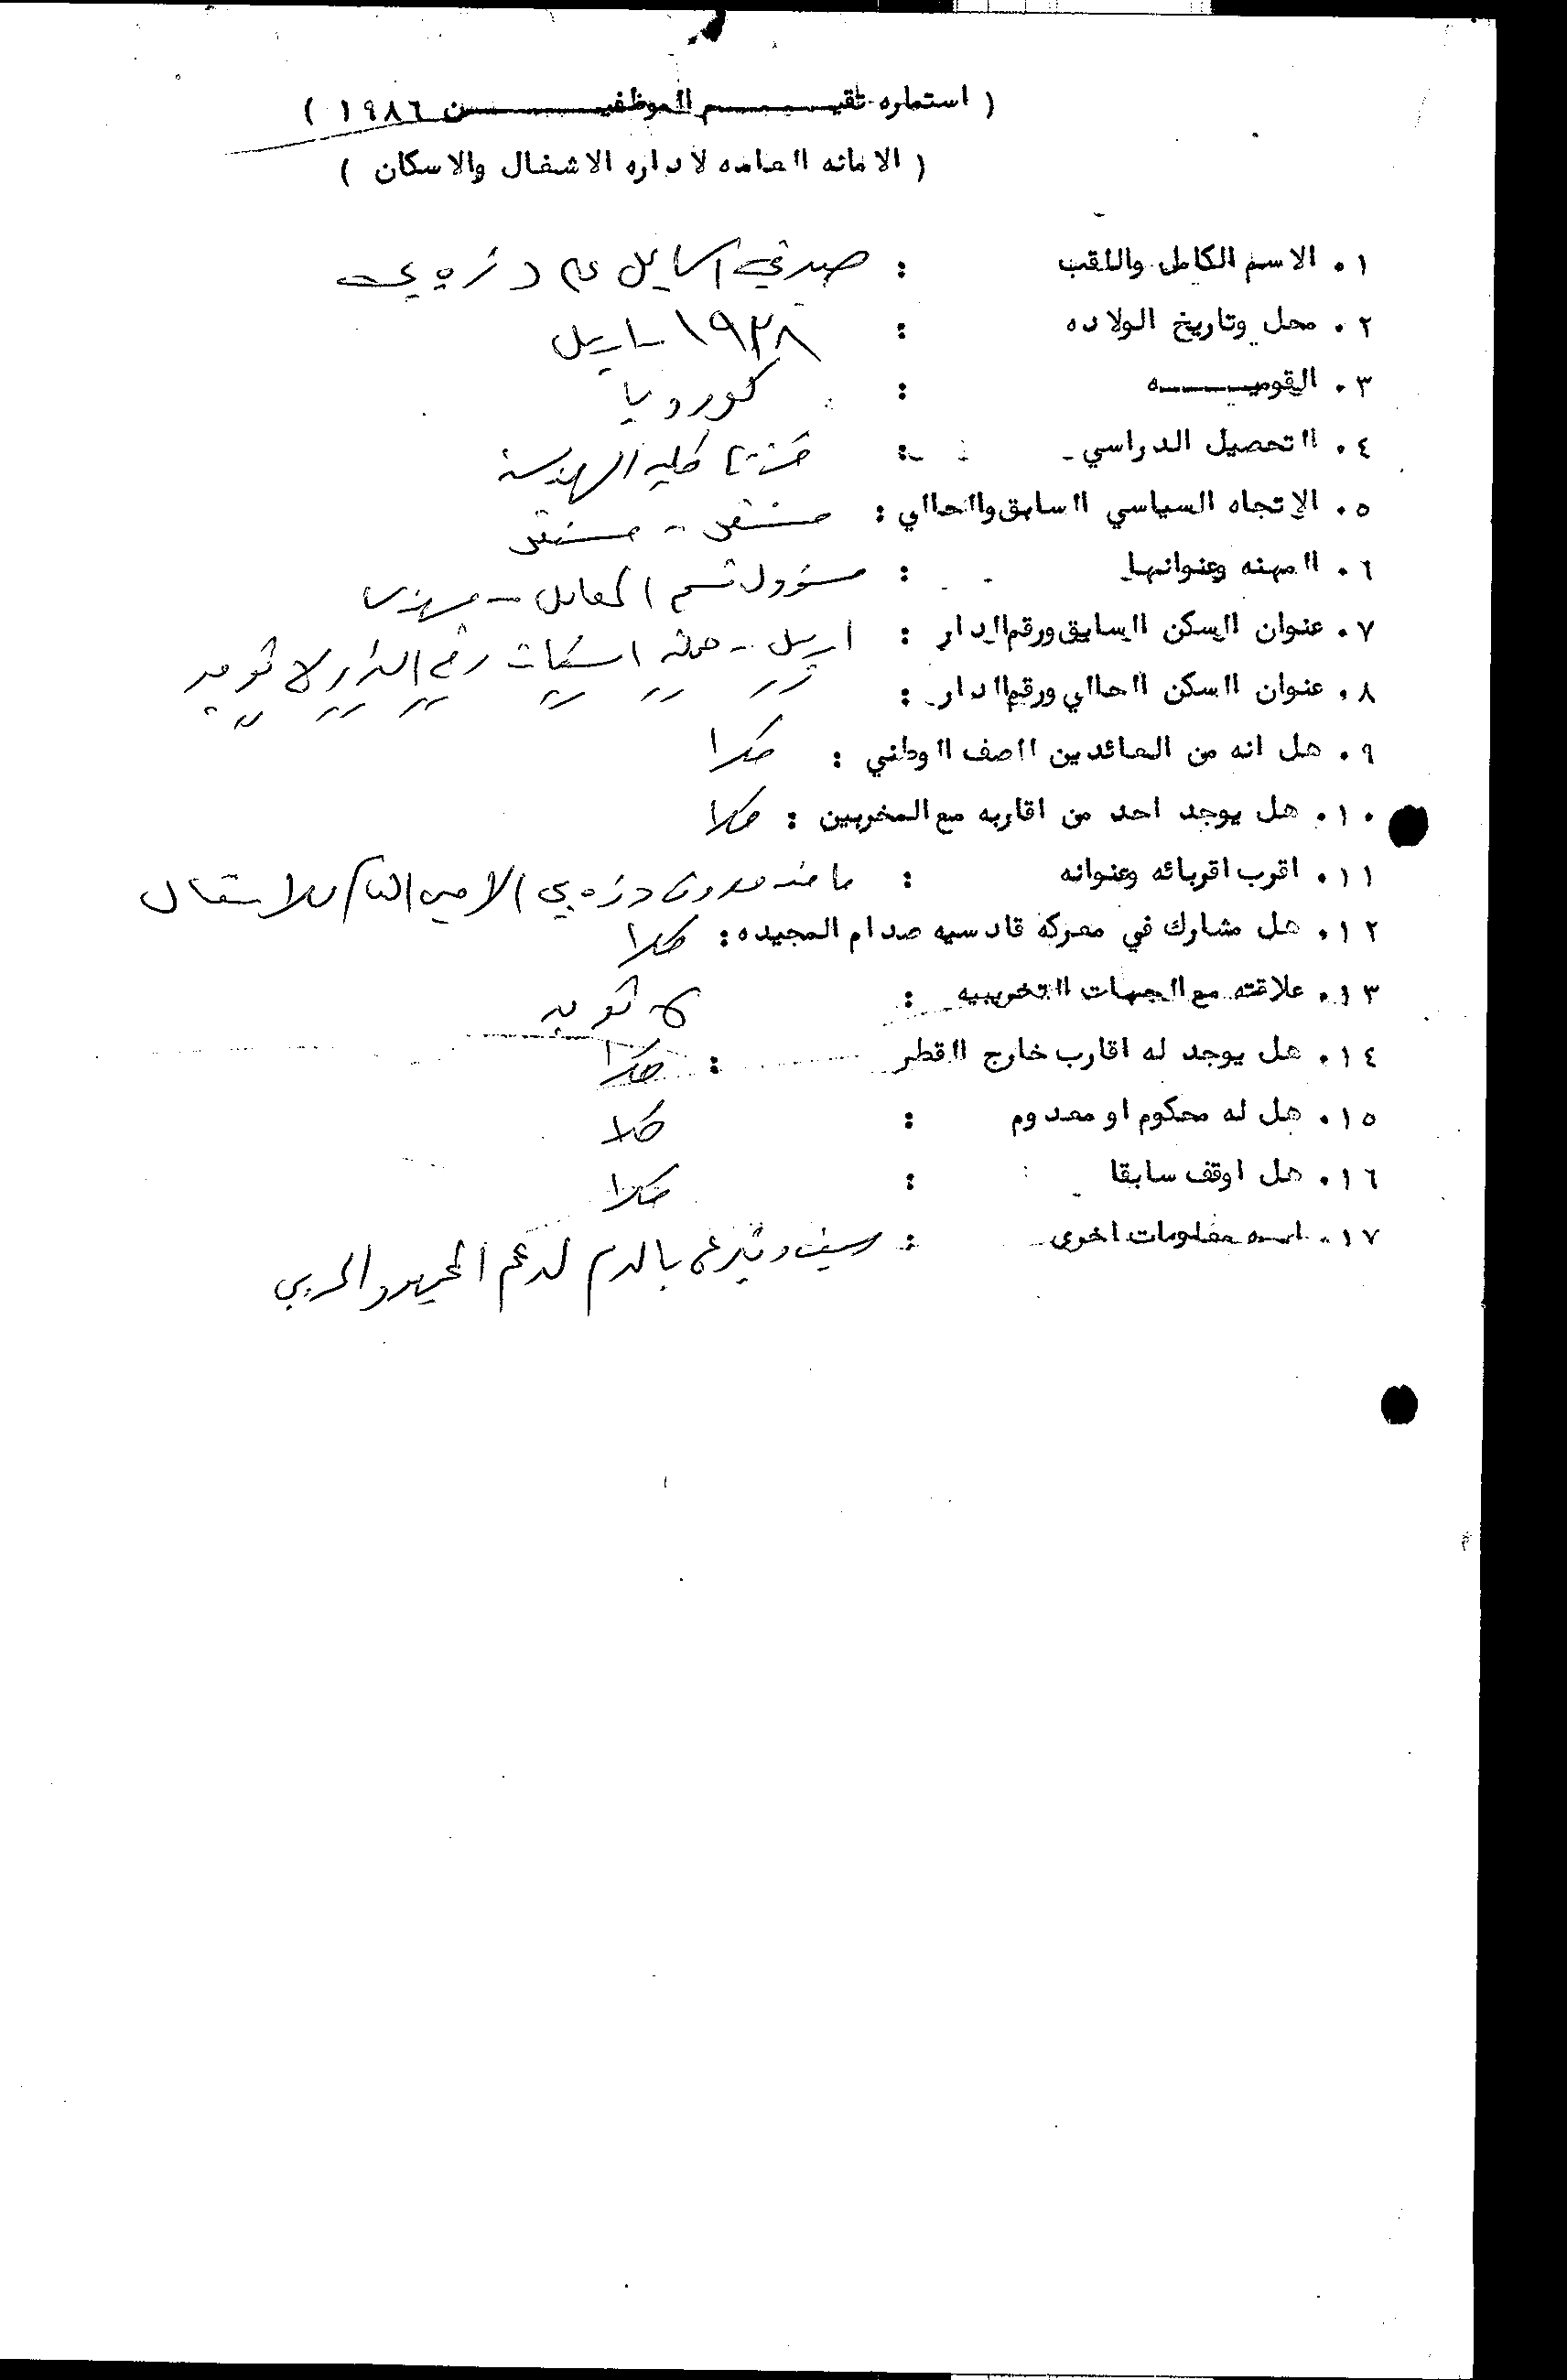 ( استماره تقيـــــم الموظفيـــــــن ١٩٨٦ )
( الامانه العامه لاداره الاشغال والاسكان )
١. الاسم الكامل واللقب : صدقي اسماعيل دزه يي
٢. محل وتاريخ الولاده : ١٩٣٨ اربيل
٣. القوميــــــه :
٤. التحصيل الدراسي : كليه الهندسة
٥. الإتجاه السياسي السابق والحالي : مستقل - مستقل
٦. المهنه وعنوانها : مسؤول قسم - مهندس
٧. عنوان السكن السابق ورقم الدار : اربيل - محلة رقم الدار لا توجد
٨. عنوان السكن الحالي ورقم الدار : // // // // // //
٩. هل انه من العائدين الصف الوطني : كلا
١٠. هل يوجد احد من اقاربه مع المخربين : كلا
١١. اقرب اقربائه وعنوانه : دزه يي الامين العام للاشغال
١٢. هل مشارك في معركه قادسيه صدام المجيده : كلا
١٣. علاقته مع الجهات التخريبيه : لا توجد
١٤. هل يوجد له اقارب خارج القطر : كلا
١٥. هل له محكوم او معدوم : كلا
١٦. هل اوقف سابقا : كلا
١٧. ايه معلومات اخرى : بالدم لدعم المجهود الحربي